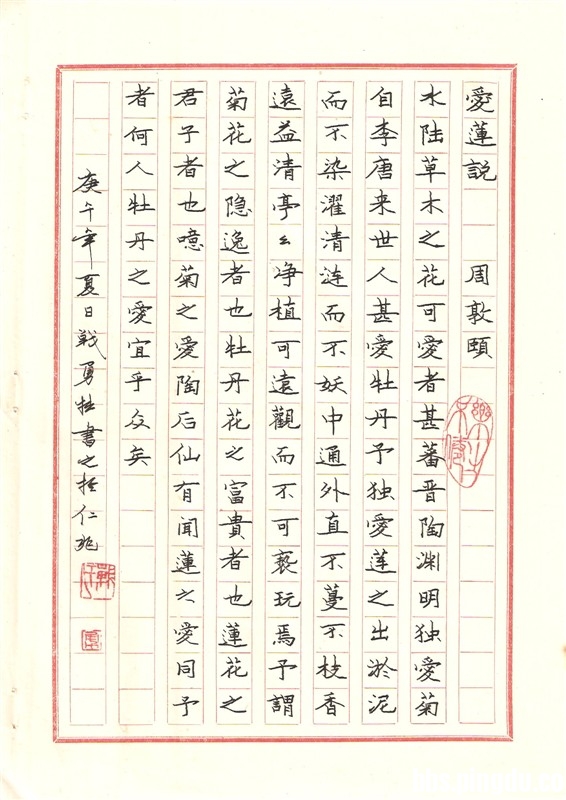 愛蓮説 周敦頤
水陆草木之花可愛者甚蕃晋陶渊明独愛菊
自李唐来世人甚愛牡丹予独愛莲之出淤泥
而不染濯清涟而不妖中通外直不蔓不枝香
遠益清亭々净植可遠觀而不可亵玩焉予謂
菊花之隐逸者也牡丹花之富貴者也蓮花之
君子者也噫菊之愛陶后仙有闻蓮之愛同予
者何人牡丹之愛宜乎众矣
庚午年夏日戰勇拙書之於仁兆